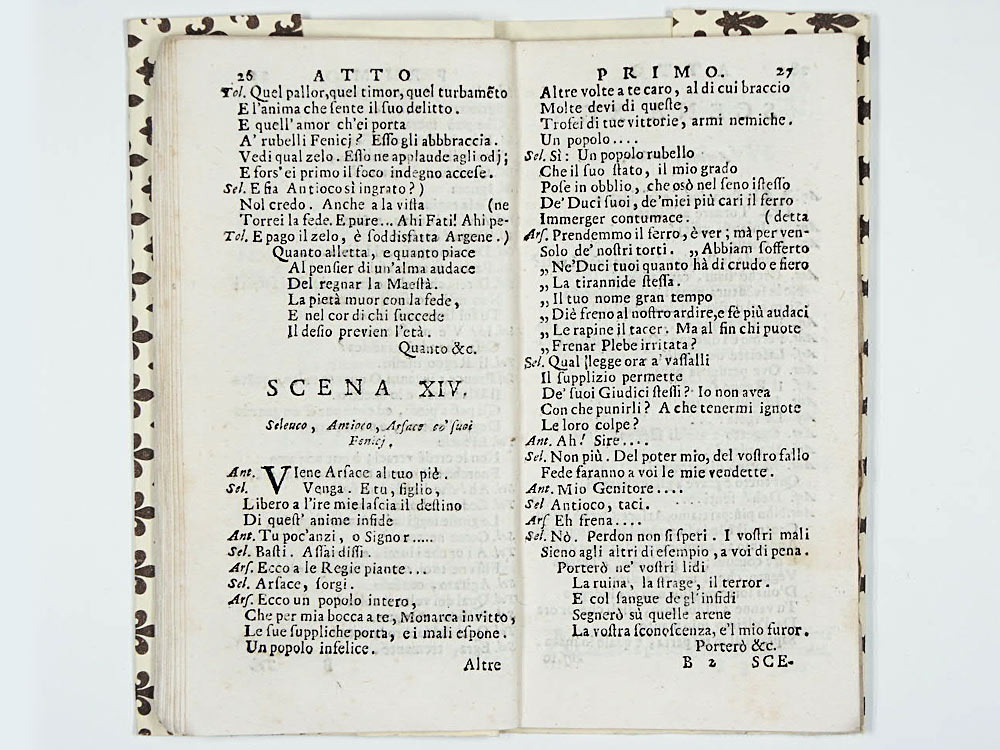 26 ATTO
Tol. Quel pallor, quel timor, quel turbamẽto
E l'anima che ſente il ſuo delitto.
E quell' amor ch'ei porta
A' rubelli Fenicj? Eſſo gli abbbraccia.
Vedi qual zelo. Eſſo ne applaude agli odj;
E forſ'ei primo il foco indegno acceſe.
Sel. E fia Antioco sì ingrato?)
Nol credo. Anche a la viſta (ne
Torrei la fede. E pure... Ahi Fati! Ahi pe-
Tol. E pago il zelo, è ſoddisfatta Argene.)
Quanto alletta, e quanto piace
Al penſier di un'alma audace
Del regnar la Maeſtà.
La pietà muor con la fede,
E nel cor di chi ſuccede
Il deſio previen l'età.
Quanto &c.
SCENA XIV.
Seleuco, Antioco, Arſace co' ſuoi
Fenicj.
Ant. VIene Arſace al tuo piè.
Sel. Venga. E tu, figlio,
Libero a l'ire mie laſcia il deſtino
Di queſt' anime infide
Ant. Tu poc'anzi, o Signor.....
Sel. Baſti. Aſſai diſſi.
Arſ. Ecco a le Regie piante...
Sel. Arſace, ſorgi.
Arſ. Ecco un popolo intero,
Che per mia bocca a te, Monarca invitto,
Le ſue ſuppliche porta, e i mali eſpone.
Un popolo infelice.
Altre
PRIMO. 27
Altre volte a te caro, al di cui braccio
Molte devi di queſte,
Trofei di tue vittorie, armi nemiche.
Un popolo....
Sel. Sì: Un popolo rubello
Che il ſuo ſtato, il mio grado
Poſe in obblio, che osò nel ſeno iſteſſo
De' Duci ſuoi, de' miei più cari il ferro
Immerger contumace. (detta
Arſ. Prendemmo il ferro, è ver; mà per ven-
Solo de' noſtri torti. „Abbiam ſofferto
„Ne'Duci tuoi quanto hà di crudo e fiero
„La tirannide ſteſſa.
„Il tuo nome gran tempo
„Diè freno al noſtro ardire, e fè più audaci
„Le rapine il tacer. Ma al fin chi puote
„Frenar Plebe irritata?
Sel. Qual legge ora a' vaſſalli
Il ſupplizio permette
De' ſuoi Giudici ſteſſi? Io non avea
Con che punirli? A che tenermi ignote
Le loro colpe?
Ant. Ah! Sire....
Sel. Non più. Del poter mio, del voſtro fallo
Fede faranno a voi le mie vendette.
Ant. Mio Genitore....
Sel Antioco, taci.
Arſ Eh frena....
Sel. Nò. Perdon non ſi ſperi. I voſtri mali
Sieno agli altri di eſempio, a voi di pena.
Porterò ne' voſtri lidi
La ruina, la ſtrage, il terror.
E col ſangue degl'infidi
Segnerò sù quelle arene
La voſtra ſconoſcenza, e'l mio furor.
Porterò &c.
B 2 SCE-